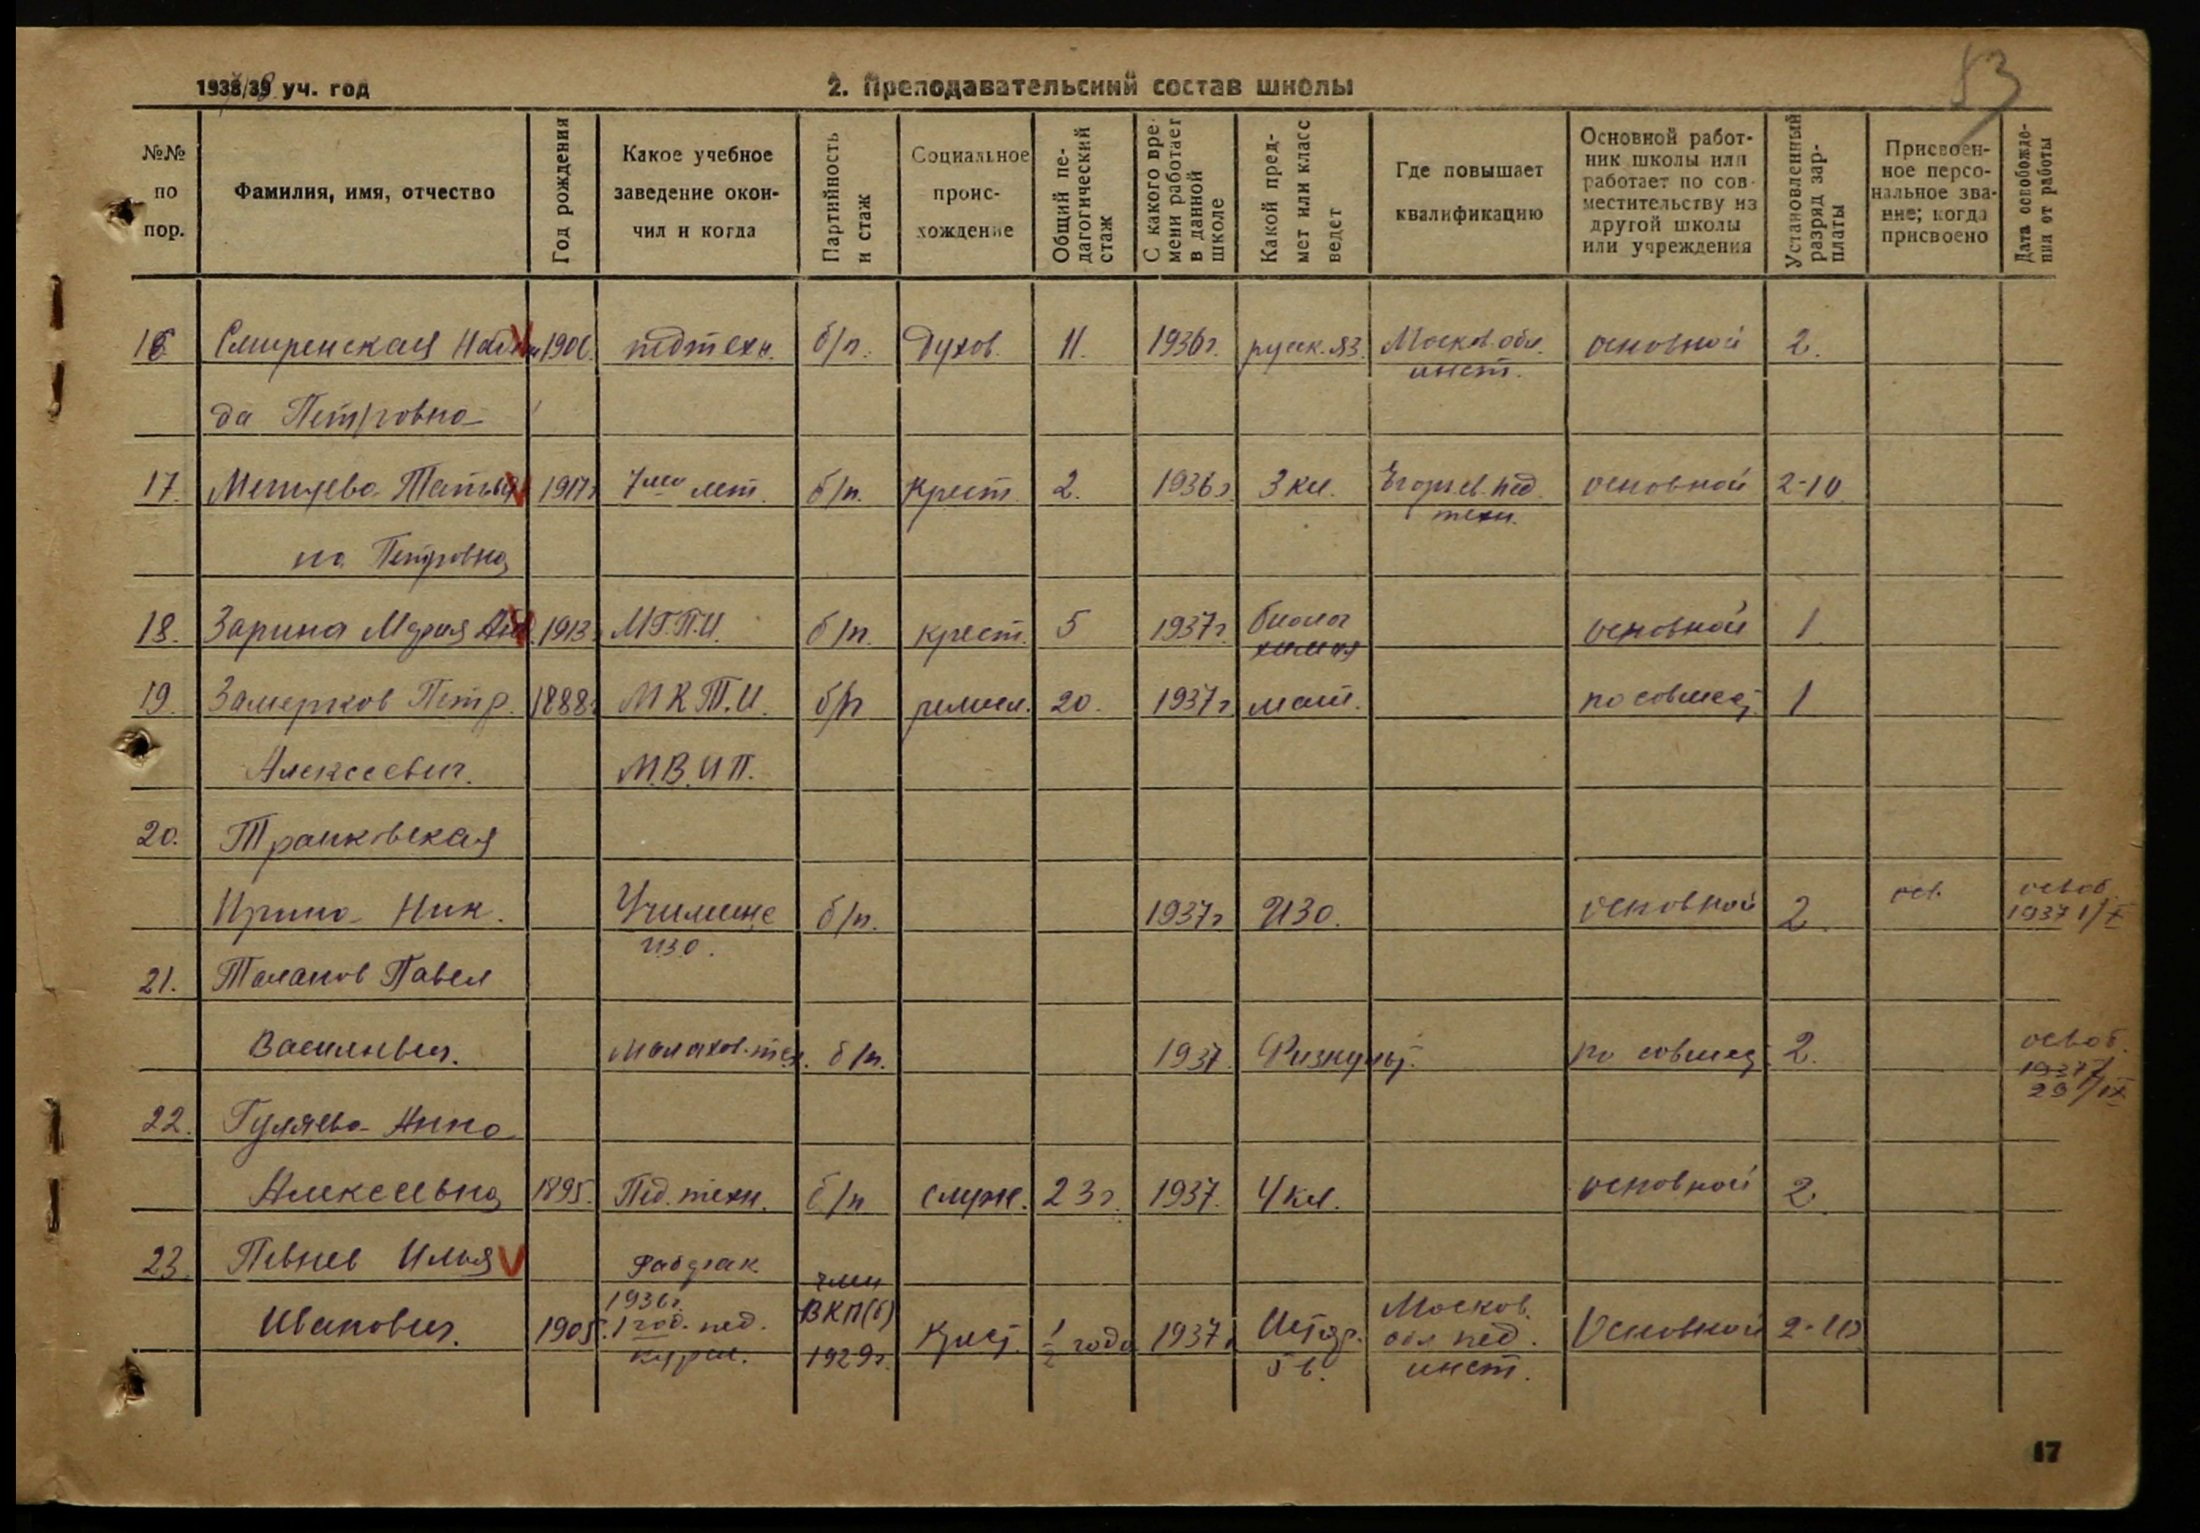 1937/38 уч. год
2. Преподавательский состав школы
83
№№ по пор.
Фамилия, имя, отчество
Год рождения
Какое учебное заведение окончил и когда
Партийность и стаж
Социальное проис-хождение
Общий пе-дагогический стаж
С какого вре-мени работает в данной школе
Какой пред-мет или класс ведет
Где повышает квалификацию
Основной работ-ник школы или работает по сов-местительству из другой школы или учреждения
Установленный разряд зар-платы
Присвоен-ное персо-нальное зва-ние; когда присвоено
Дата освобожде-ния от работы
16 Смиренская Надеж 1906. педтехн. б/п. Духов. 11. 1936г. русск. яз. Москов. обл. основной 2.
инст.
да Петровна
17. Татья 1917г 7ми лет. б/п. Крест. 2. 1936г. 3 кл. Егорьев. пед. основной 2-10
техн.
на Петровна
18. Зарина Мария 1913г М.Г.П.И. б/п. крест. 5 1937г. биолог основной 1
химия
19. Петр. 1888г М.К.Т.И. б/п ремесл. 20. 1937г мат. по совмест 1
Алексеевич. М.В.И.П.
20. Транковская
Ирина Ник. Училище б/п. 1937г ИЗО. основной 2. осв. освоб.
1937 1/X
ИЗО.
21. Таланов Павел
Васильевич. Малахов. тех. б/п. 1937 Физкульт. по совмест 2. освоб.
1937г
29/IX
22. Гуляева Анна
Алексеевна 1895. Пед. техн. б/п служ. 23г. 1937. 4 кл. основной 2.
23. Певнев Илья Рабфак член
Иванович. 1905. 1936г. 1 год. пед. курсы. ВКП(б) 1929г. Крест. 1/2 года 1937г Истор. 5 в. Москов. обл пед. инст. Основной 2-10
17